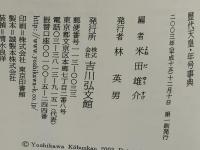 歴代天皇・年号事典
二〇〇三年(平成十五)十二月十日 第一刷発行
編者 米田雄介
発行者 林英男
発行所 株式会社 吉川弘文館
郵便番号一一三―〇〇三三
東京都文京区本郷七丁目二番八号
電話〇三―三八一三―九一五一〈代表〉
振替口座〇〇一〇〇―五―二四四番
印刷=株式会社 東京印書館
製本=誠製本株式会社
装幀=清水良洋
Yoshikawa Kōbunkan 2003